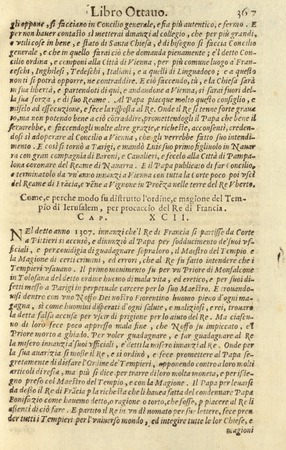 Libro Ottauo. 367
gli oppone, si facciano in Concilio generale, e fia più autentico, e fermo. E
per non hauer contasto si metterai dinanzi al collegio, che per più grandi,
e vtili cose in bene, e stato di Santa Chiesa, è di bisogno si faccia Concilio
generale, e che in quello farai ciò che domanda pienamente; E'l detto Concilio
ordina, e componi alla Città di Vienna, per più comune luogo à Franceschi,
Inghilesi, e Tedeschi, e Italiani, e a quelli di Linguadoco; e a questo
non ti potrà opporre, ne contraddire. E ciò facendo, tù, e la Chiesa sarà in
sua libertà, e partendoti di quì, e andandone a Vienna, ti sarai fuori della
sua forza, e di suo Reame. Al Papa piacque molto questo consiglio, e
misselo ad essecuzione, e fece la risposta al Re. Onde il Re si tenne forte grauato,
ma non potendo bene a ciò contradire, promettendogli il Papa che bene il
seruirebbe, e faccendogli molte altre grazie, e richieste, acconsentì, credendosi
d'adoperare al Concilio a Vienna, che gli verrebbe fatto suo intendimento.
E così si tornò a Parigi, e mandò Luis suo primo figliuolo in Nauarra
con gran compagnia di Baroni, e Caualieri, e fecelo alla Città di Pampalona
coronare del Reame di Nauarra. E il Papa publicato il suo Concilio,
e terminatolo da vn' anno innanzi a Vienna con tutta la Corte poco poi vscì
del Reame di Frācia, e vēne a Vignone in Proēza nelle terre del Re Vberto.
Come, e perche modo fu distrutto l'ordine, e magione del Tempio
di Ierusalem, per procaccio del Re di Francia.
CAP. XCII.
NEl detto anno 1307. innanzi che'l Re di Francia si partisse da Corte
a Pittieri si accusò, e dinunziò al Papa per soddducimento de' suoi vficiali,
e per cupidigia di guadagnare sopra loro, il Maestro del Tempio e
la Magione di certi crimini, ed errori, che al Re fu fatto intendere che i
Tempieri vsauano. Il primo mouimento fu per vn Priore di Monsalcone
in Tolosana del detto ordine huomo di mala vita, ed eretico, e per suoi difetti
messo a Parigi in perpetuale carcere per lo suo Maestro. E trouandosi
dentro con vno Noffo Dei nostro Fiorentino huomo pieno d'ogni magagna,
sì come huomini disperati d'ogni salute, e maliziosi, e rei, trouaro
la detta falsa accusa per vscir di prigione per lo aiuto del Re. Ma ciascuno
di loro fece poco appresso mala fine, che Noffo fu impiccato, e'l
Priore morto a ghiado. Per voler guadagnare, e far guadagnare al Re
la missero innanzi a' suoi vfficiali, e detti la missero innanzi al Re. Onde per
la sua auarizia si mosse il Re, e si ordinò, e fece promettere al Papa segretamente
di disfare l'Ordine de' Tempieri, opponendo contro a loro molti
articoli di resia, ma più si dice per trarre di loro molta moneta, e per isdegno
preso col Maestro del Tempio, e con la Magione. Il Papa per leuarsi
da dosso il Re di Frācia p la richiesta che li hauea fatta del condennare Papa
Bonifazio come hauemo detto, o ragione o torto, che'l fosse, p piacere al Re li
assentì di ciò fare. E partito il Re in vn dì nomato per sue lettere, fece prender
tutti i Tempieri per l'vniuerso mondo, ed integire tutte le lor Chiese, e
magioni